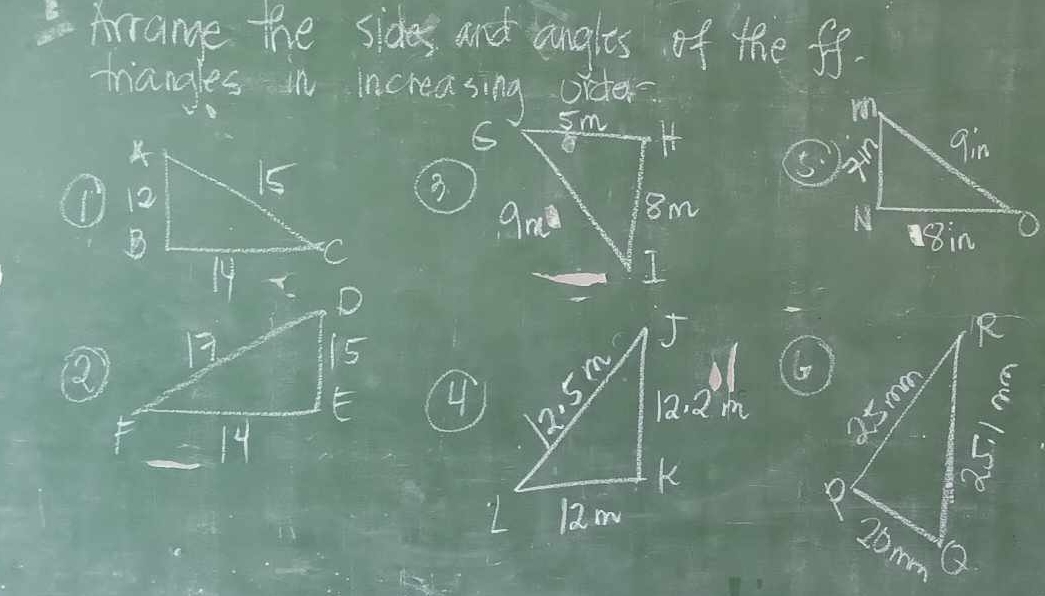 Arrange the sides and angles of the ff.
triangles in increasing order
① A 12 B 14 C 15
② D 15 E 14 F 17
③ G 5m H 8m I 9m
④ J 12.2 m K 12m L 12.5 m
⑤ M 7in N 8in O 9in
⑥ R 25mm P 20mm Q 25.1 mm